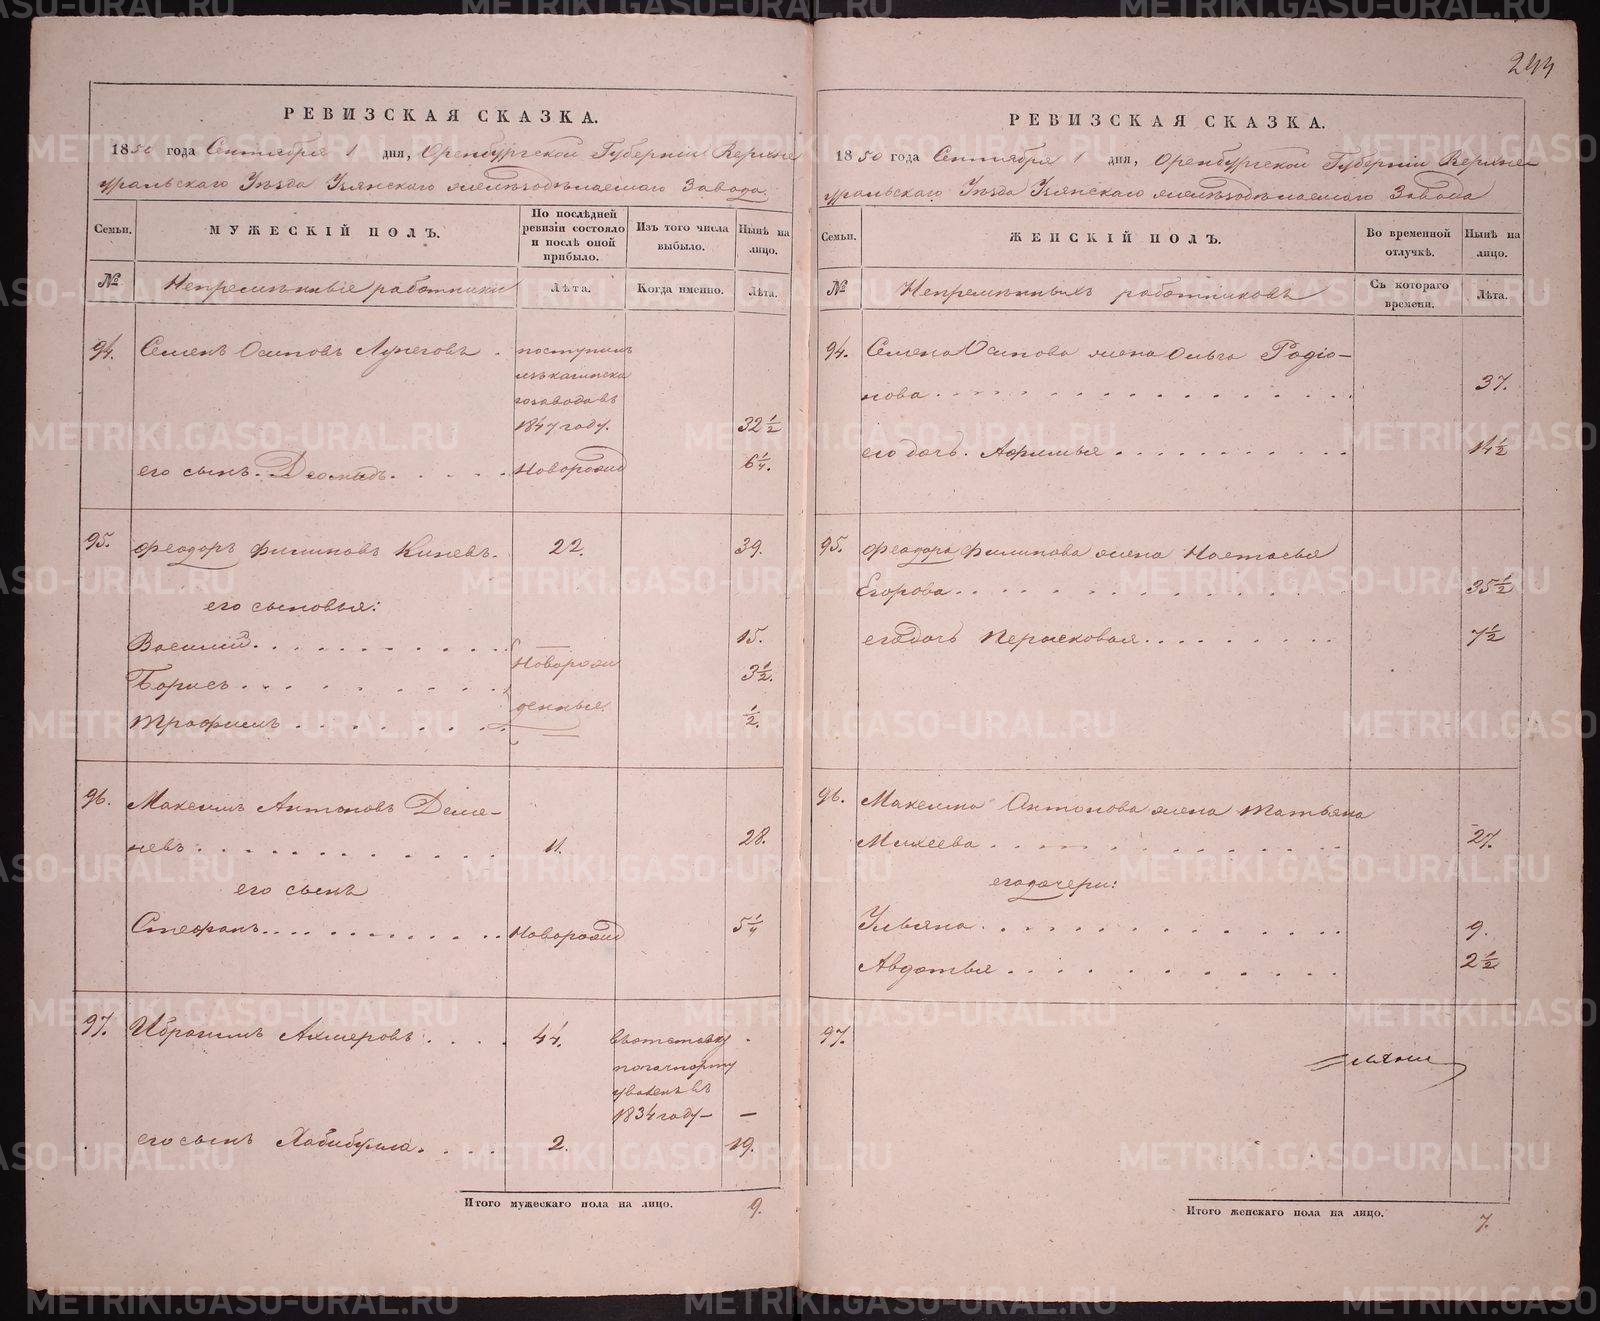 244
РЕВИЗСКАЯ СКАЗКА.
1850 года Сентября 1 дня, Оренбургской Губернiи Верхне
уральскаго Уѣзда Узянскаго желѣзодѣлаемаго Завода
Семьи.
МУЖЕСКІЙ ПОЛЪ.
По послѣдней ревизіи состояло и послѣ оной прибыло.
Изъ того числа выбыло.
Нынѣ на лицо.
№
Непремѣнные работники
Лѣта.
Когда именно.
Лѣта.
94. Семенъ Осиповъ Лунеговъ . поступилъ
изъ кагинска
го завода въ
1847 году. 32 1/2
его сынъ. Диомидъ. Новорожд 6 1/4.
95. Феодоръ Филиповъ Киневъ. 22. 39.
его сыновья:
Василий. 15.
Борисъ. Новорож 3 1/2.
Трофимъ денные. 1/2.
96. Максимъ Антоновъ Деме-
невъ. 11. 28.
его сынъ
Стефанъ. Новорожд 5 1/4
97. Ибрагимъ Ахмеровъ. 44. въ отставку
по паспорту
уволенъ въ
1834 году –
его сынъ Хабибулла. 2. 19.
Итого мужескаго пола на лицо. 9.
РЕВИЗСКАЯ СКАЗКА.
1850 года Сентября 1 дня, Оренбургской Губернiи Верхне
уральскаго Уѣзда Узянскаго желѣзодѣлаемаго Завода
Семьи.
ЖЕНСКІЙ ПОЛЪ.
Во временной отлучкѣ.
Нынѣ на лицо.
№
Непремѣнныхъ работниковъ
Съ котораго времени.
Лѣта.
94. Семена Осипова жена Ольга Родiо-
нова 37.
его дочь. Афимья 14 1/2
95. Феодора Филипова жена Настасья
Егорова 35 1/2
его дочь Персковья 7 1/2
96. Максима Антонова жена Татьяна
Михеева 27.
его дочери:
Ульяна 9.
Авдотья 2 1/2
97.
Итого женскаго пола на лицо. 7.
METRIKI.GASO-URAL.RU